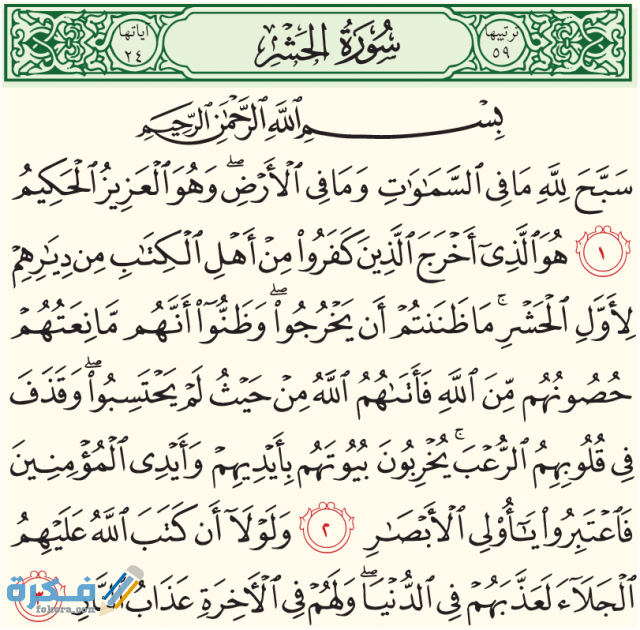 ترتيبها ٥٩ سُورَةُ الحَشْرِ آياتها ٢٤
بِسْمِ اللَّهِ الرَّحْمَٰنِ الرَّحِيمِ
سَبَّحَ لِلَّهِ مَا فِى ٱلسَّمَٰوَٰتِ وَمَا فِى ٱلْأَرْضِۖ وَهُوَ ٱلْعَزِيزُ ٱلْحَكِيمُ
١ هُوَ ٱلَّذِىٓ أَخْرَجَ ٱلَّذِينَ كَفَرُوا۟ مِنْ أَهْلِ ٱلْكِتَٰبِ مِن دِيَٰرِهِمْ
لِأَوَّلِ ٱلْحَشْرِۚ مَا ظَنَنتُمْ أَن يَخْرُجُوا۟ۖ وَظَنُّوٓا۟ أَنَّهُم مَّانِعَتُهُمْ
حُصُونُهُم مِّنَ ٱللَّهِ فَأَتَىٰهُمُ ٱللَّهُ مِنْ حَيْثُ لَمْ يَحْتَسِبُوا۟ۖ وَقَذَفَ
فِى قُلُوبِهِمُ ٱلرُّعْبَۚ يُخْرِبُونَ بُيُوتَهُم بِأَيْدِيهِمْ وَأَيْدِى ٱلْمُؤْمِنِينَ
فَٱعْتَبِرُوا۟ يَٰٓأُو۟لِى ٱلْأَبْصَٰرِ ٢ وَلَوْلَآ أَن كَتَبَ ٱللَّهُ عَلَيْهِمُ
ٱلْجَلَآءَ لَعَذَّبَهُمْ فِى ٱلدُّنْيَاۖ وَلَهُمْ فِى ٱلْءَاخِرَةِ عَذَابُ ٱلنَّارِ ٣
فكرة
fekera.com